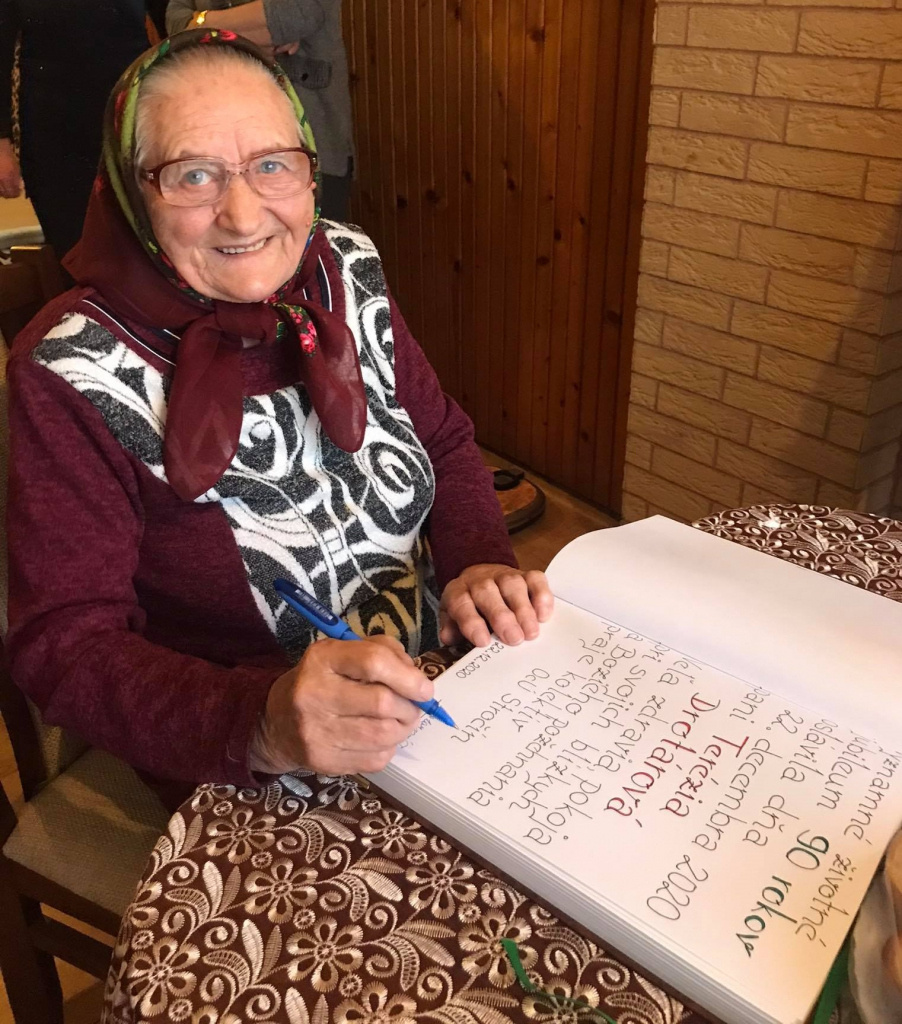 znamné životné
jubileum 90 rokov
oslávila dňa
22. decembra 2020
pani Terézia
Drotárová
veľa zdravia, pokoja
pri svojich blízkych
a Božieho požehnania
praje kolektív
OcÚ Stročín
22.12.2020